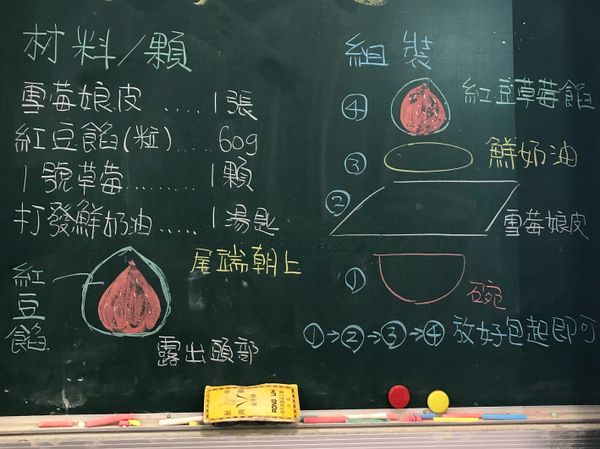 材料/顆
雪莓娘皮....1張
紅豆餡(粒)....60g
1號草莓......1顆
打發鮮奶油.....1湯匙
紅豆餡
尾端朝上
露出頭部
組裝
④ 紅豆草莓餡
③ 鮮奶油
② 雪莓娘皮
① 碗
①→②→③→④ 放好包起即可